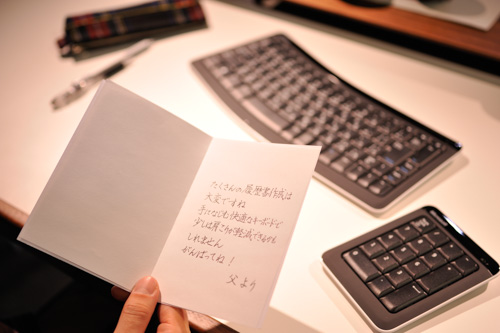 たくさんの履歴書作成は
大変ですね
手になじむ快適なキーボードで
少しは肩こりが軽減できるかも
しれません
がんばってね！
父より